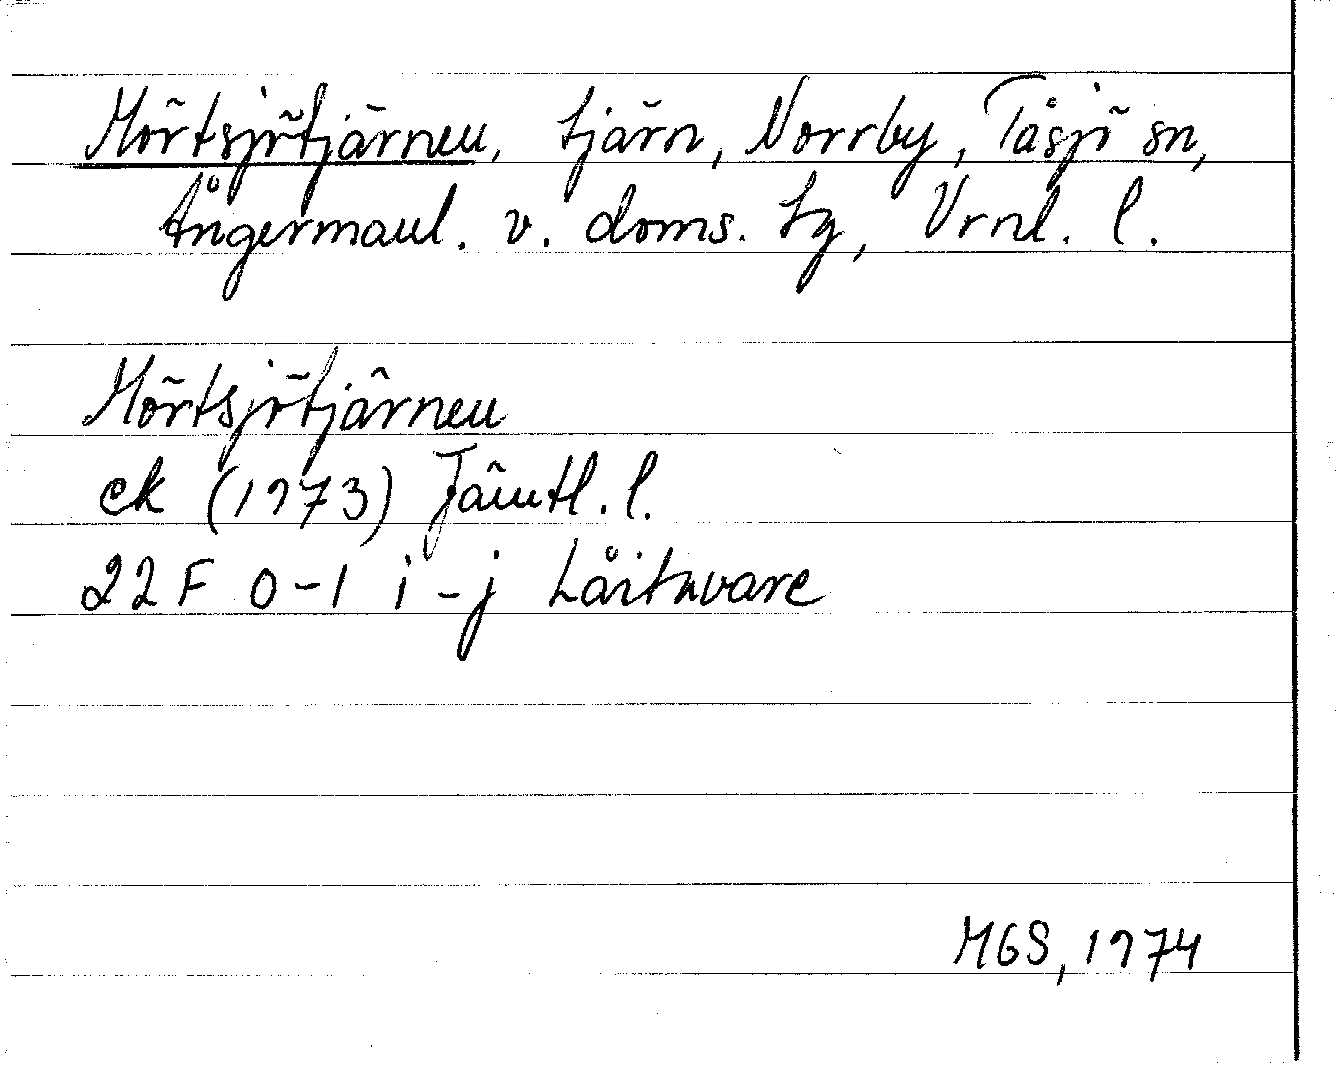 Mörtsjötjärnen, tjärn, Norrby, Tåsjö sn,
Ångermanl. v. doms. tg, Vrnl. l.
Mörtsjötjärnen
ek (1973) Jämtl. l.
22 F 0-1 i-j Låitavare
MGS, 1974